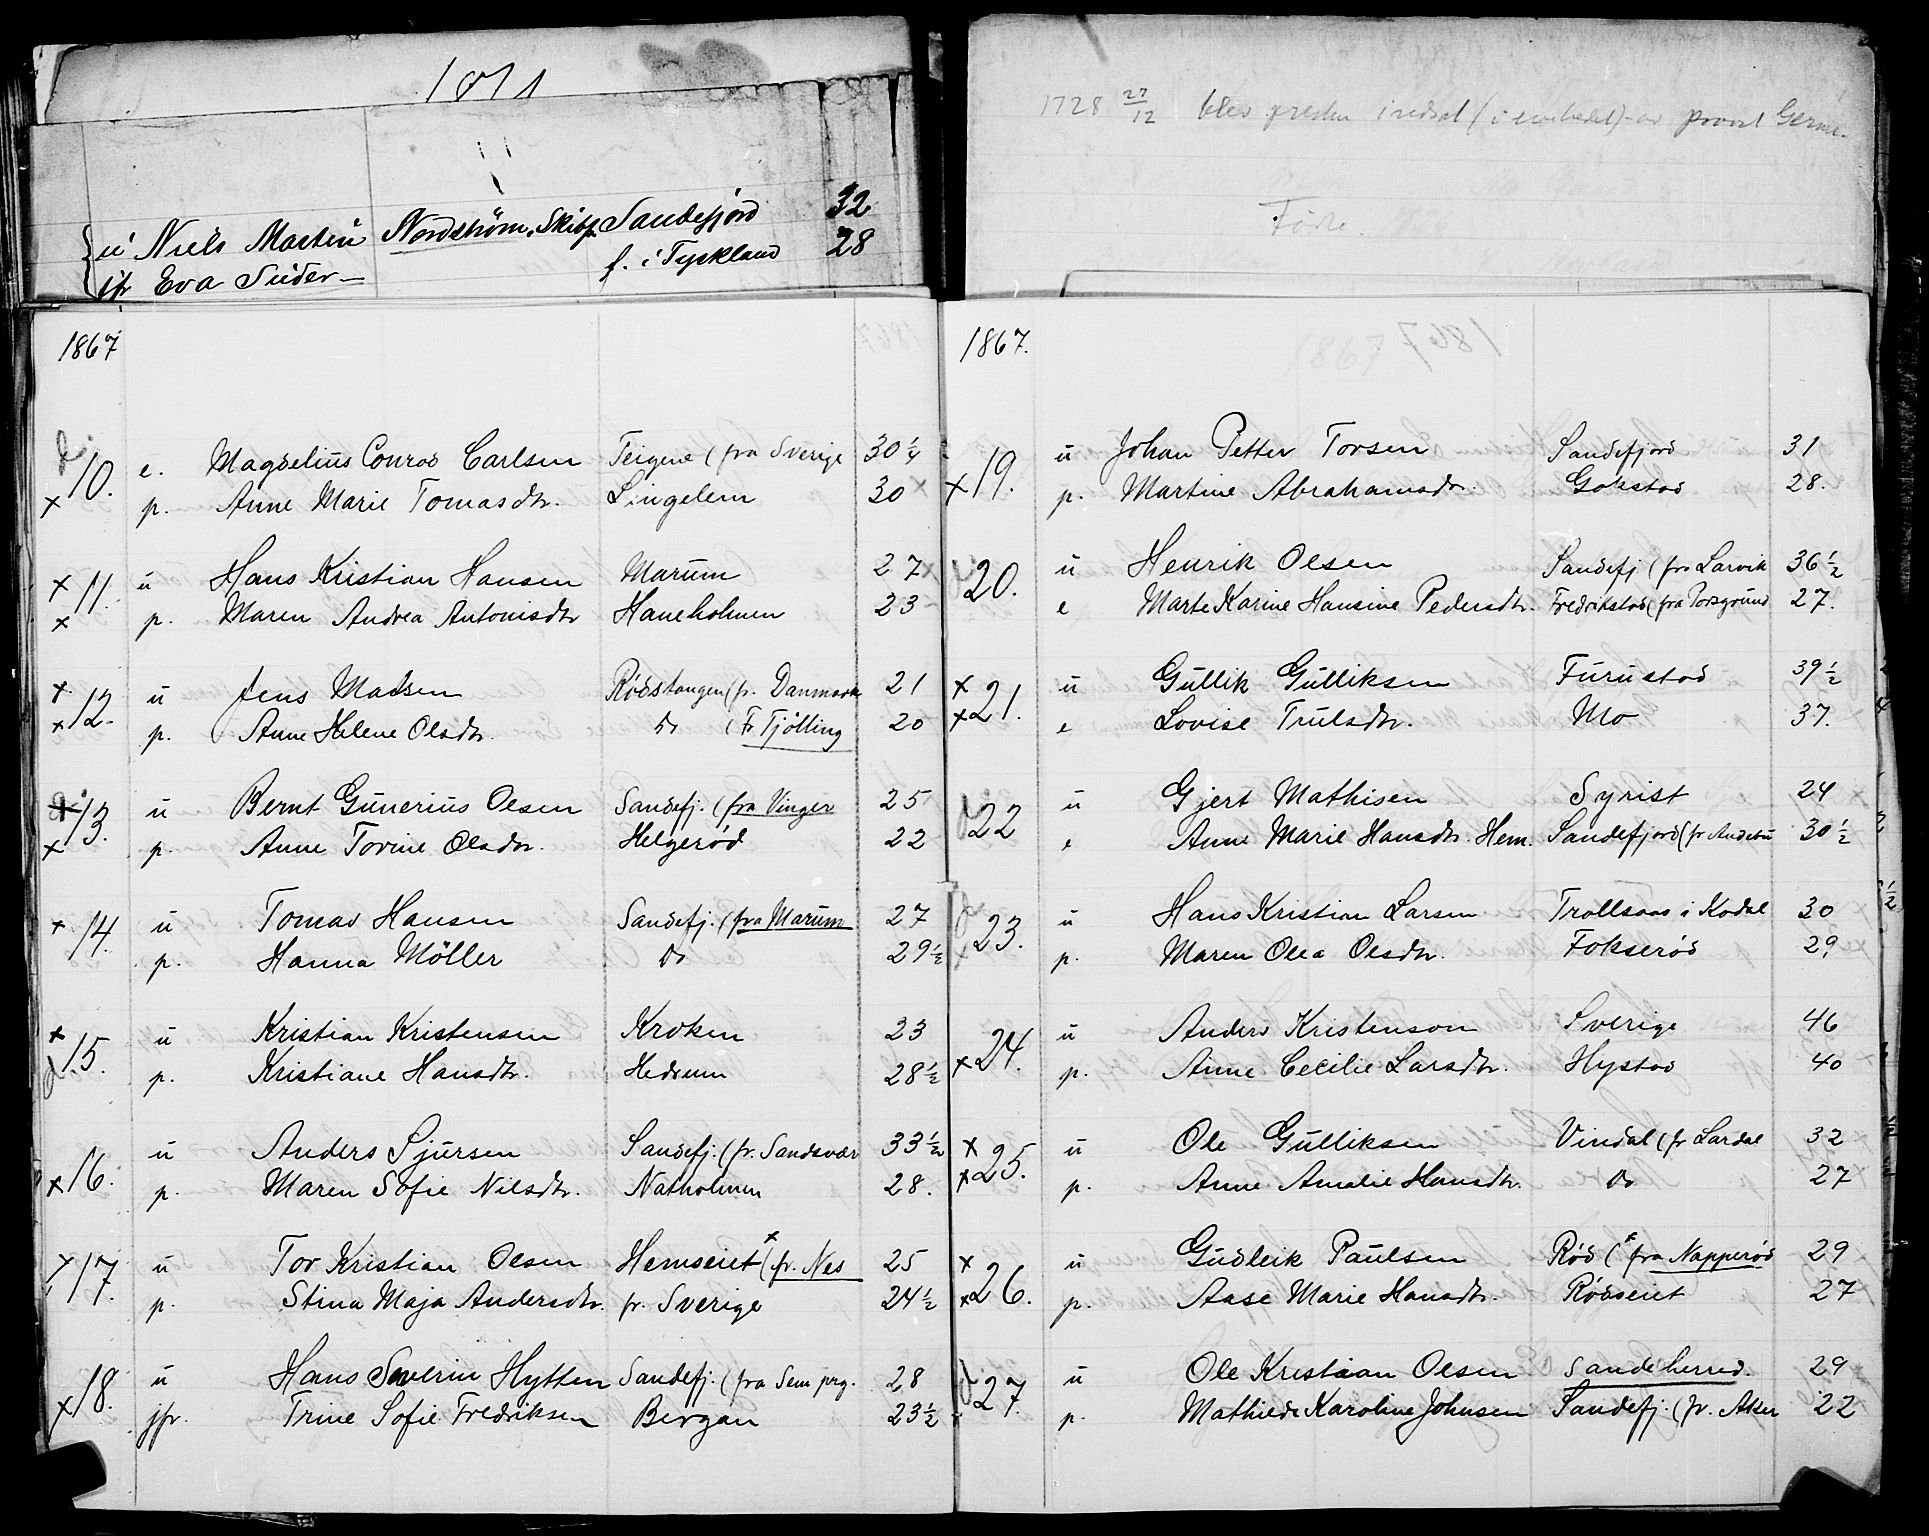 1871
ú Niels Martin Nordström, Skibf. Sandefjord 32
jfr Eva Suder— f. i Tyskland 28
1867
10. e. Magdelius Conrad Carlsen Teigene (fra Sverige 30 1/4
x p. Anne Marie Tomasdtr. Lingelem 30
x 11. ú Hans Kristian Hansen Marum 27
x p. Maren Andrea Antonisdtr Haneholmen 23
x 12. ú Jens Madsen Rødstangen (fr. Danmark 21
x p. Anne Helene Olsdtr. Do (Fr Tjölling 20
13. ú Bernt Gunerius Olsen Sandefj. (fra Vinger 25
x p. Anne Torine Olsdtr. Helgerød 22
x 14. ú Tomas Hansen Sandefj. (fra Marum 27
p. Hanna Möller Do 29 1/2
x 15. ú Kristian Kristensen Kroken 23
p. Kristiane Hansdtr. Hedrum 28 1/2
16. ú Anders Sjursen Sandefj. (fr. Sandsvær 33 1/2
x p. Maren Sofie Nilsdtr. Natholmen 28.
x 17. ú Tor Kristian Olsen Hemseiet x (fr. Nes 25
p. Stina Maja Andersdtr. fr. Sverige 24 1/2
x 18. ú Hans Severin Hytten Sandefj. (fra Sem prg. 28
jfr. Trine Sofie Fredriksen Bergan 23 1/2
1728 27/12 blev presten indsat (i embedet) av provst
Føde.
1867.
x 19. ú Johan Petter Torsen Sandefjord 31
p. Martine Abrahamsdtr. Gokstad 28.
20. ú Henrik Olsen Sandefj (fra Larvik 36 1/2
e Marte Karine Hansine Pedersdtr. Fredrikstad (fra Porsgrund 27.
x 21. ú Gullik Gulliksen Furustad 39 1/2
x e Lovise Trulsdtr. Mo 37.
22 ú Gjert Mathisen Syrist 24
e Anne Marie Hansdtr. Hem. Sandefjord (fr Andebu 30 1/2
23. ú Hans Kristian Larsen Trollsaas i Kodal 30
x p. Maren Olea Olsdtr. Fokserød 29
24. ú Anders Kristenson Sverige 46
x p. Anne Cecilie Larsdtr. Hystad 40
x 25. ú Ole Gulliksen Vindal (fr Lardal 32
x p. Anne Amalie Hansdtr. Do 27
x 26. ú Gudleik Paulsen Rød (x fra Napperød 29
x p. Aase Marie Hansdtr. Rødseiet 27
27. ú Ole Kristian Olsen Sandeherred. 29
p. Mathilde Karoline Johnsen Sandefj. (fr. Aker 22